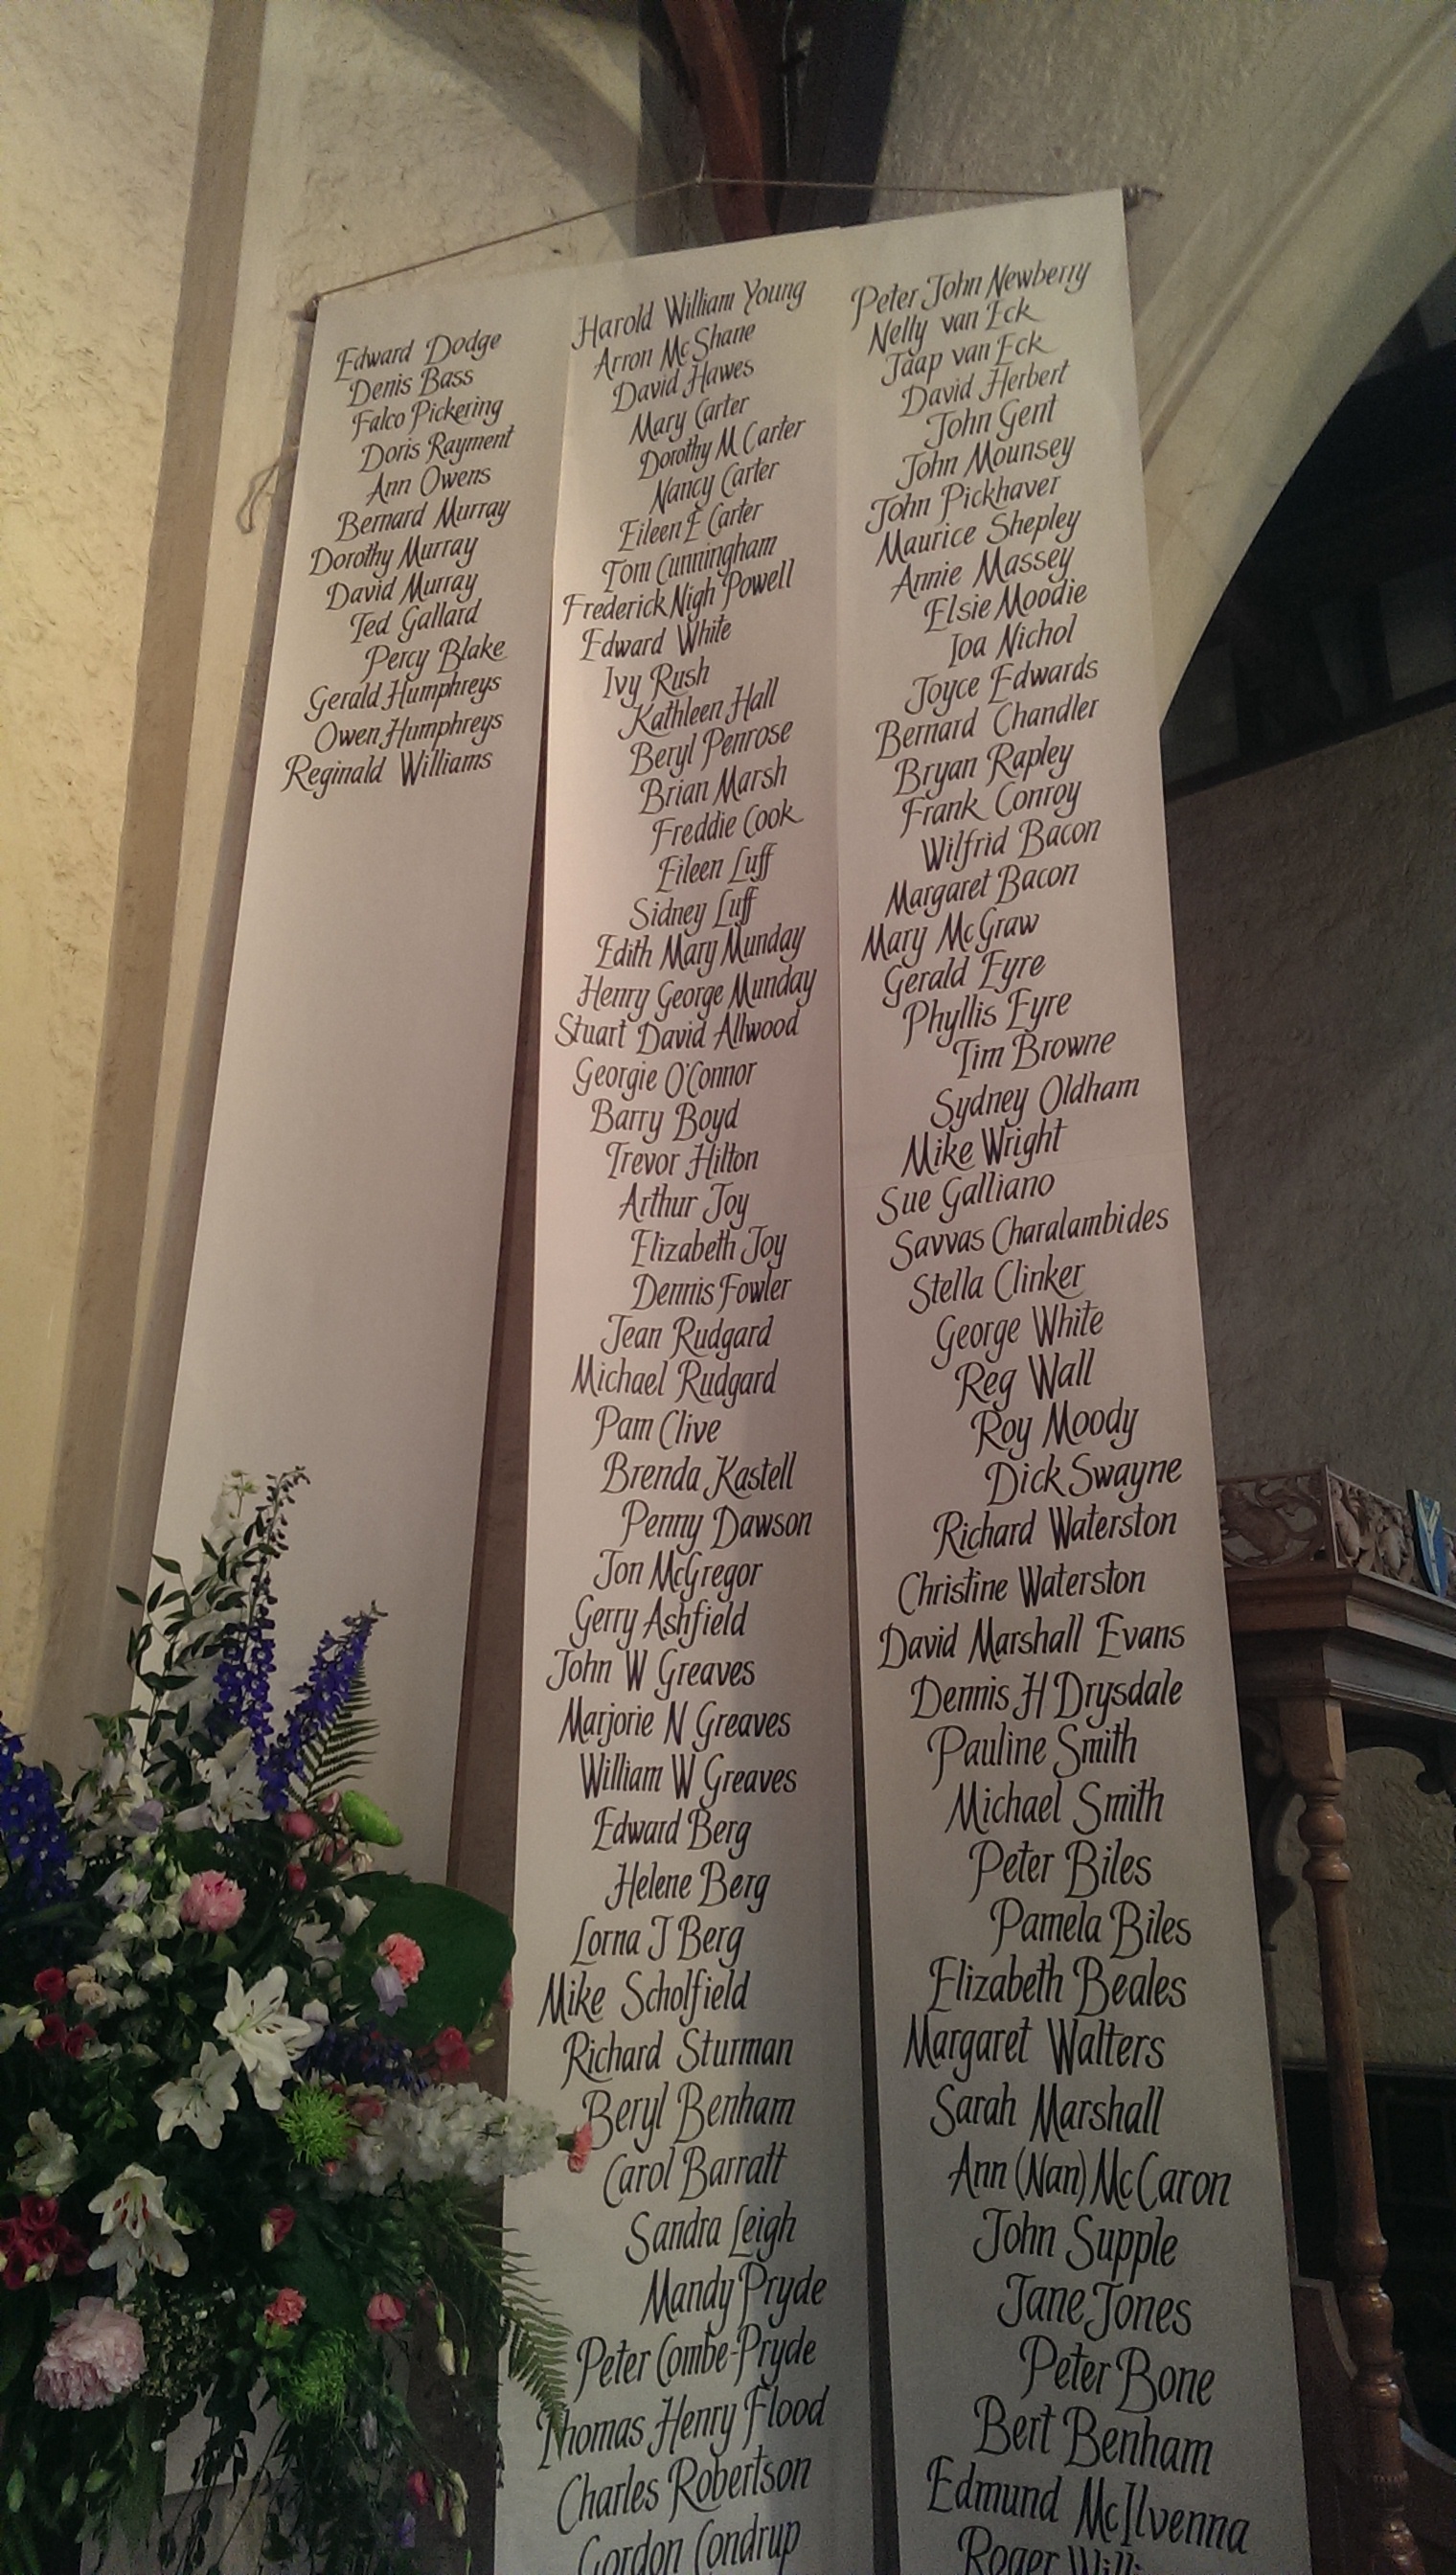 Edward Dodge
Denis Bass
Falco Pickering
Doris Rayment
Ann Owens
Bernard Murray
Dorothy Murray
David Murray
Ted Gallard
Percy Blake
Gerald Humphreys
Owen Humphreys
Reginald Williams
Harold William Young
Arron McShane
David Hawes
Mary Carter
Dorothy M Carter
Nancy Carter
Eileen E Carter
Tom Cunningham
Frederick Nigh Powell
Edward White
Ivy Rush
Kathleen Hall
Beryl Penrose
Brian Marsh
Freddie Cook
Eileen Luff
Sidney Luff
Edith Mary Munday
Henry George Munday
Stuart David Allwood
Georgie O'Connor
Barry Boyd
Trevor Hilton
Arthur Joy
Elizabeth Joy
Dennis Fowler
Jean Rudgard
Michael Rudgard
Pam Clive
Brenda Kastell
Penny Dawson
Jon McGregor
Gerry Ashfield
John W Greaves
Marjorie N Greaves
William W Greaves
Edward Berg
Helene Berg
Lorna J Berg
Mike Scholfield
Richard Sturman
Beryl Benham
Carol Barratt
Sandra Leigh
Mandy Pryde
Peter Combe-Pryde
Thomas Henry Flood
Charles Robertson
Gordon Condrup
Peter John Newberry
Nelly van Eck
Jaap van Eck
David Herbert
John Gent
John Mounsey
John Pickhaver
Maurice Shepley
Annie Massey
Elsie Moodie
Ioa Nichol
Joyce Edwards
Bernard Chandler
Bryan Rapley
Frank Conroy
Wilfrid Bacon
Margaret Bacon
Mary McGraw
Gerald Eyre
Phyllis Eyre
Tim Browne
Sydney Oldham
Mike Wright
Sue Galliano
Savvas Charalambides
Stella Clinker
George White
Reg Wall
Roy Moody
Dick Swayne
Richard Waterston
Christine Waterston
David Marshall Evans
Dennis H Drysdale
Pauline Smith
Michael Smith
Peter Biles
Pamela Biles
Elizabeth Beales
Margaret Walters
Sarah Marshall
Ann (Nan) McCaron
John Supple
Jane Jones
Peter Bone
Bert Benham
Edmund McIlvenna
Roger